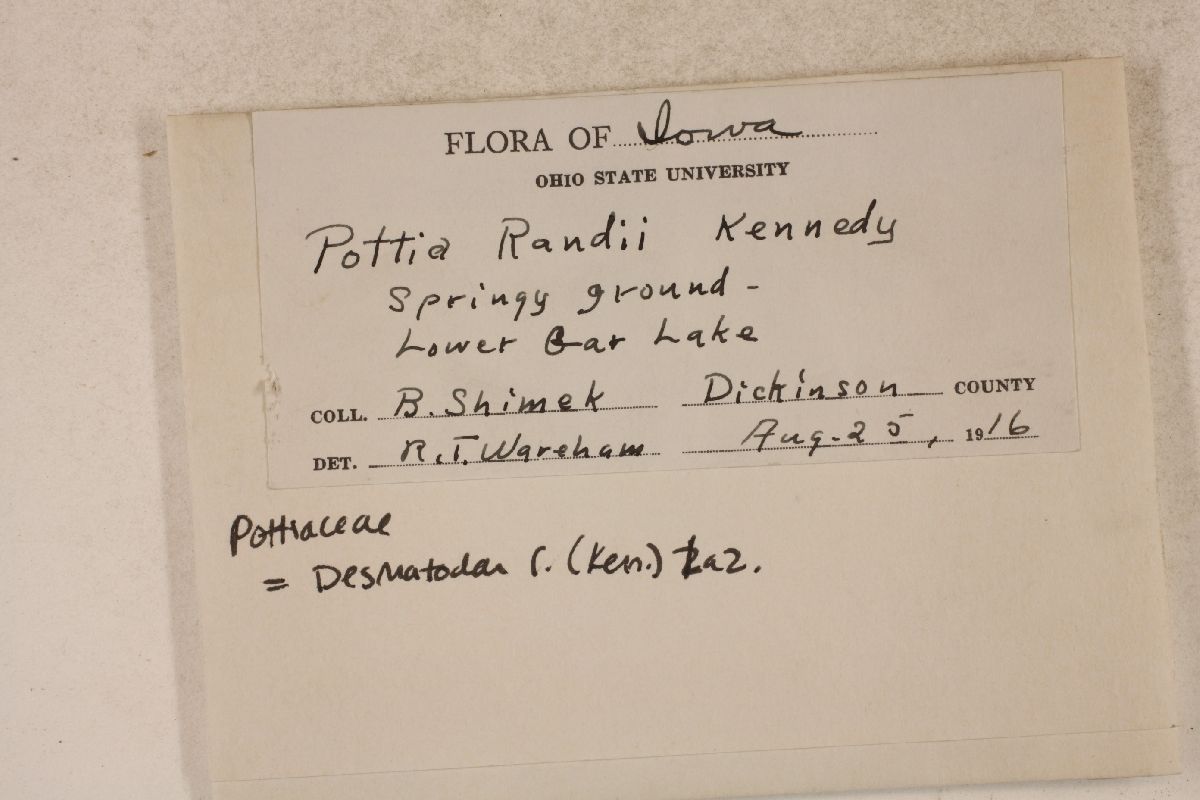 FLORA OF Iowa
OHIO STATE UNIVERSITY
Pottia Randii Kennedy
Springy ground -
Lower Gar Lake
COLL. B. Shimek Dickinson COUNTY
DET. R.T. Wareham Aug. 25, 1916
Pottiaceae
= Desmatodon r. (Ken.) Laz.